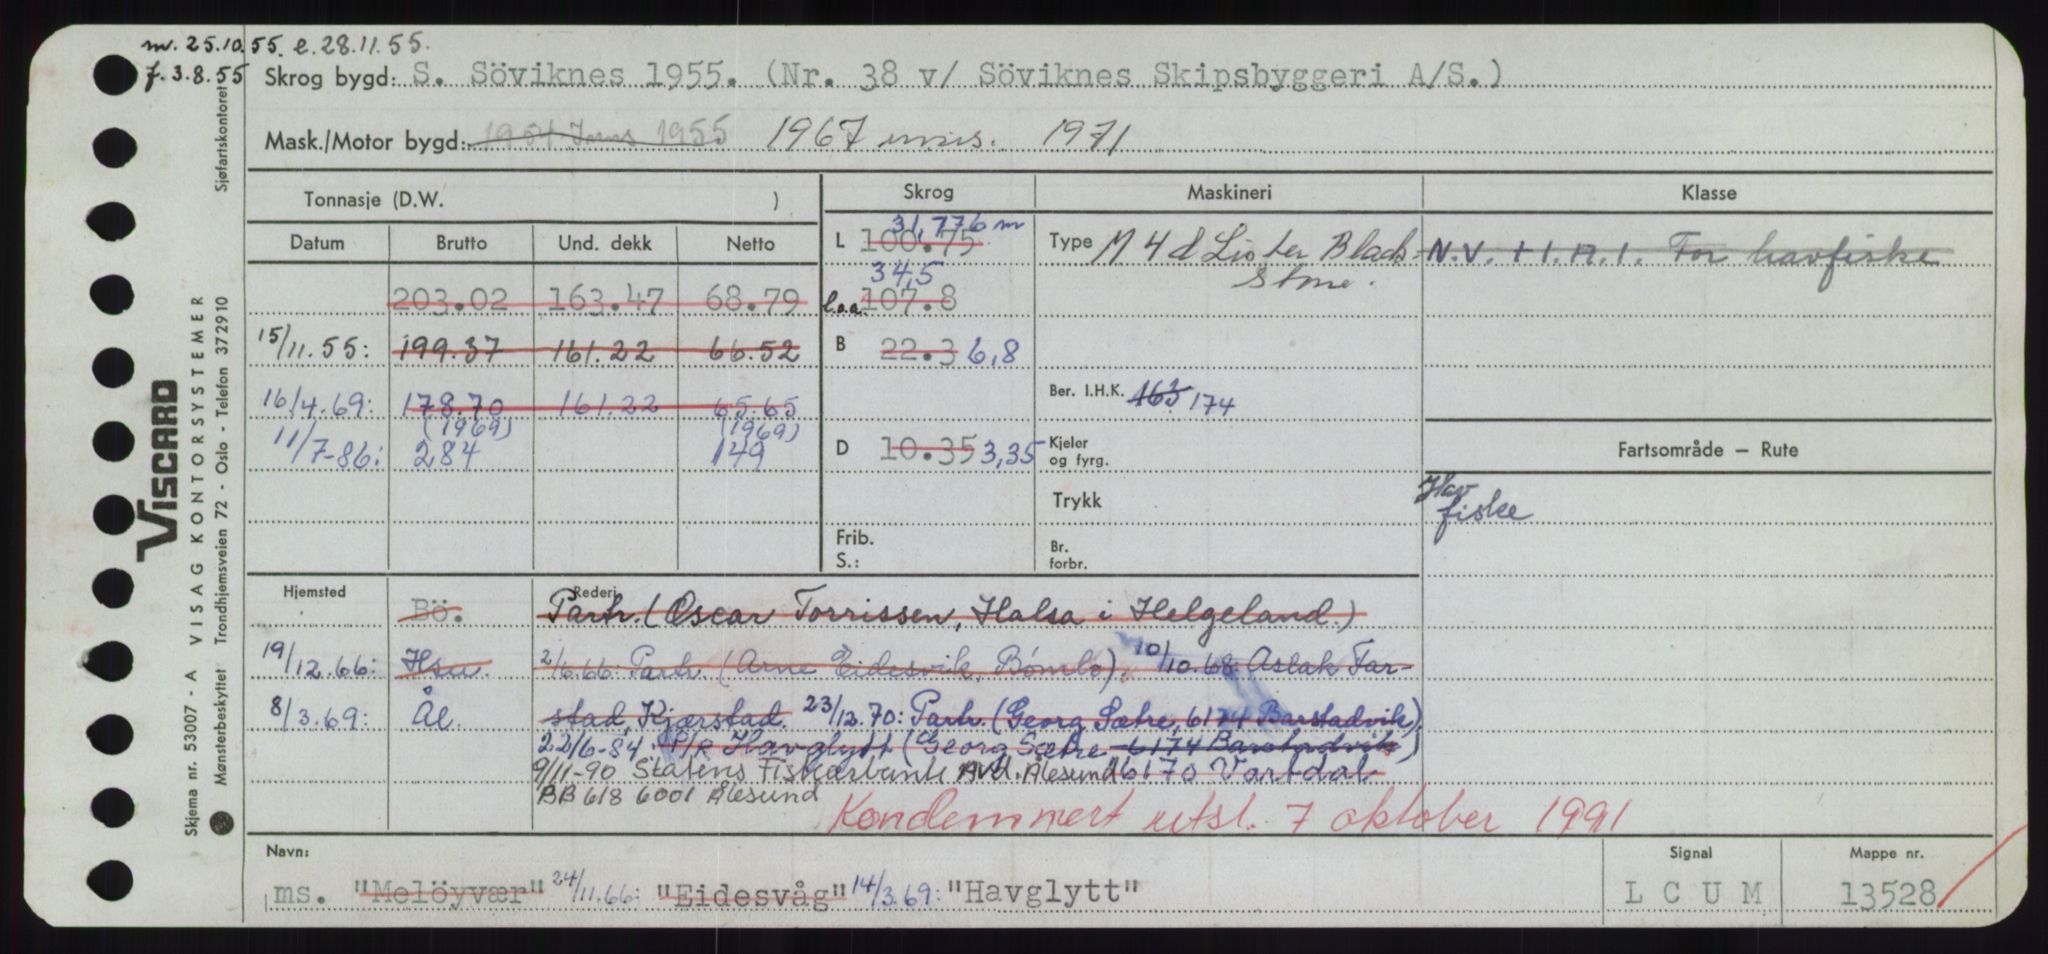 m. 25.10.55. e. 28.11.55.
f. 3.8.55 Skrog bygd: S. Söviknes 1955. (Nr. 38 v/ Söviknes Skipsbyggeri A/S.)
Mask./Motor bygd: 1955 1967 1971
Tonnasje (D.W. ) Skrog Maskineri Klasse
Datum Brutto Und. dekk Netto
L 100.75 31,776 m
Type M 4 d Lister Black-
stone.
N.V. + 1.A.1. For havfiske
203.02 163.47 68.79 l.o.a. 107.8 34,5
15/11.55: 199.37 161.22 66.52 B 22.3 6,8
16/4.69: 178.70 161.22 65.65 Ber. I.H.K. 163 174
(1969) (1969)
11/7-86: 284 149 D 10.35 3,35 Kjeler
og fyrg.
Fartsområde — Rute
Trykk
Hav
fiske
Frib.
S.:
Br.
forbr.
Hjemsted Rederi
Bö. Partr. (Oscar Torrissen, Halsa i Helgeland.)
19/12.66: Hsu. 2/6.66: Partr. (Arne Eidesvik, Bømlo). 10/10.68: Aslak Far-
8/3.69: Ål. stad, Kjærstad. 23/12.70: Partr. (Georg Sætre, 6174 Barstadvik).
22/6-84. P/R Havglytt (Georg Sætre 6174 Barstadvik)
9/11-90 Statens Fiskarbank Avd. Ålesund 6170 Vartdal
BB 618 6001 Ålesund
Kondemmert utsl. 7 oktober 1991
Navn: Signal Mappe nr.
ms. "Melöyvær" 24/11.66: "Eidesvåg" 14/3.69: "Havglytt" L C U M 13528
Sjøfartskontoret
VISCARD
Skjema nr. 53007 - A VISAG KONTORSYSTEMER
Mønsterbeskyttet Trondhjemsveien 72 - Oslo - Telefon 372910